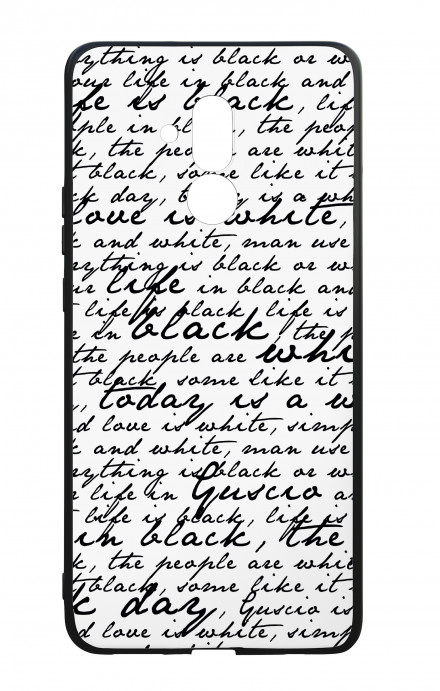 rything is black or w
our life in black and
fe is black, lif
ple in bl, the peop
k, the people are whit
t black, some like it
ck day, today is a whi
love is white,
k and white, man use
rything is black or w
ur life in black and
t life is black, life is
e in black, the p
the people are whi
t black, some like it
, today is a w
d love is white, simp
k and white, man use
rything is black or w
r life in Guscio a
t life is black, life is
in black, the
k, the people are whit
t black, some like it
k day, Guscio is
d love is white, simp